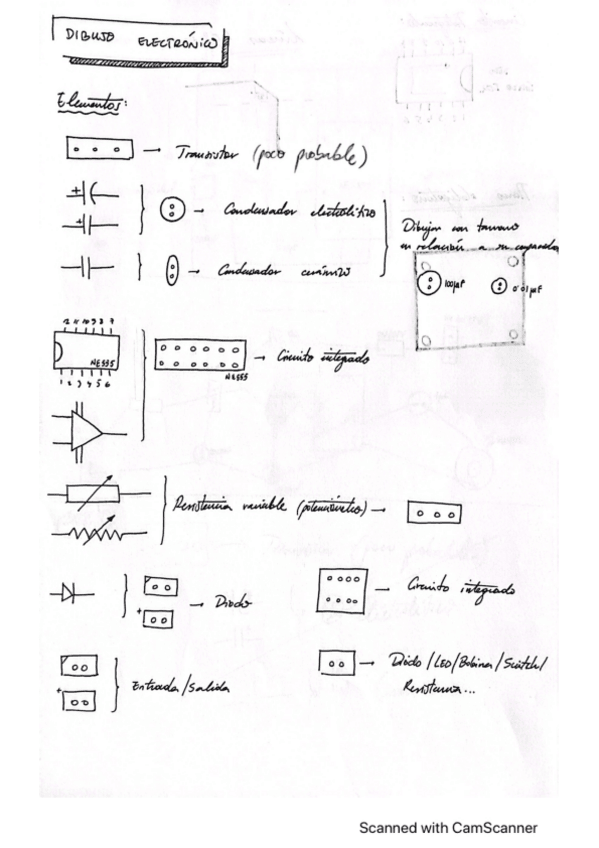 DIBUJO ELECTRÓNICO
Elementos:
→ Transistor (poco probable)
+
→ Condensador electrolítico
+
Dibujar con tamaño
en relación a su
→ Condensador cerámico
100µF
0'01µF
NE555
1 2 3 4 5 6
→ Circuito integrado
NE555
Resistencia variable (potenciómetro) →
→ Circuito integrado
+
→ Diodo
→ Diodo/LED/Bobina/Switch/
Resistencia...
+
Entrada/Salida
Scanned with CamScanner